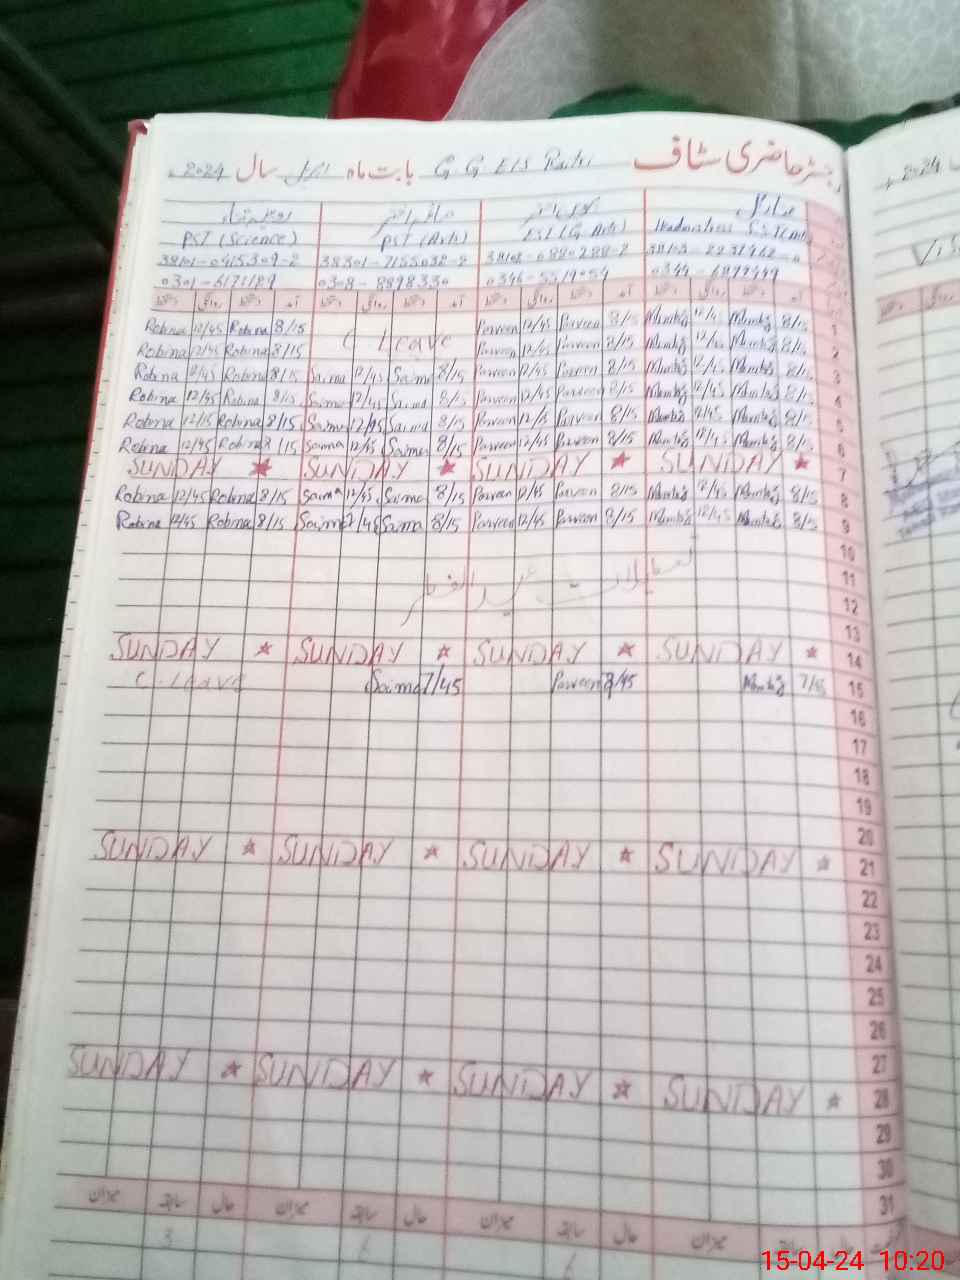 رجسٹر حاضری سٹاف G G E/S بابت ماہ اپریل سال 2024
PST (Science) PST (Arts) EST (G. Arts) Headmistress
0301-6171189 0344-6899449
آمد دستخط روانگی دستخط آمد دستخط روانگی دستخط آمد دستخط روانگی دستخط آمد دستخط روانگی دستخط
Robina 12/45 Robina 8/15 C Leave Parveen 12/45 Parveen 8/15 Mumtaz 12/45 Mumtaz 8/15 1
Robina 12/45 Robina 8/15 Parveen 12/45 Parveen 8/15 Mumtaz 12/45 Mumtaz 8/15 2
Robina 12/45 Robina 8/15 Saima 12/45 Saima 8/15 Parveen 12/45 Parveen 8/15 Mumtaz 12/45 Mumtaz 8/15 3
Robina 12/45 Robina 8/15 Saima 12/45 Saima 8/15 Parveen 12/45 Parveen 8/15 Mumtaz 12/45 Mumtaz 8/15 4
Robina 12/15 Robina 8/15 Saima 12/45 Saima 8/15 Parveen 12/15 Parveen 8/15 Mumtaz 12/45 Mumtaz 8/15 5
Robina 12/45 Robina 8/15 Saima 12/45 Saima 8/15 Parveen 12/45 Parveen 8/15 Mumtaz 12/45 Mumtaz 8/15 6
SUNDAY SUNDAY SUNDAY SUNDAY 7
Robina 12/45 Robina 8/15 Saima 12/45 Saima 8/15 Parveen 12/45 Parveen 8/15 Mumtaz 12/45 Mumtaz 8/15 8
Robina 12/45 Robina 8/15 Saima 12/45 Saima 8/15 Parveen 12/45 Parveen 8/15 Mumtaz 12/45 Mumtaz 8/15 9
10
تعطیلات عید الفطر 11
12
13
SUNDAY SUNDAY SUNDAY SUNDAY 14
C. Leave Saima 7/45 Parveen 8/45 Mumtaz 7/45 15
16
17
18
19
20
SUNDAY SUNDAY SUNDAY SUNDAY 21
22
23
24
25
26
27
SUNDAY SUNDAY SUNDAY SUNDAY 28
29
30
31
حال سابقہ میزان حال سابقہ میزان حال سابقہ میزان حال سابقہ میزان
2024
15-04-24 10:20